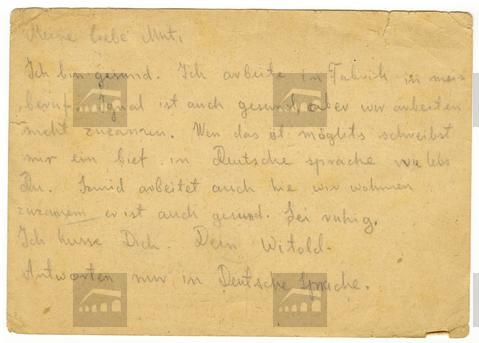 Meine liebe Mut,
Ich bin gesund. Ich arbeite in Fabrik in mein
beruf. Ignal ist auch gesund, aber wir arbeiten
nicht zuzamen. Wen das ist möglits schreibst
mir ein bief in Deutsche sprache wie lebs
Du. Szmid arbeitet auch hie wir wohnen
zuzamem er ist auch gesund. Sei ruhig.
Ich kusse Dich. Dein Witold.
Antworten nur in Deutsche Sprache.